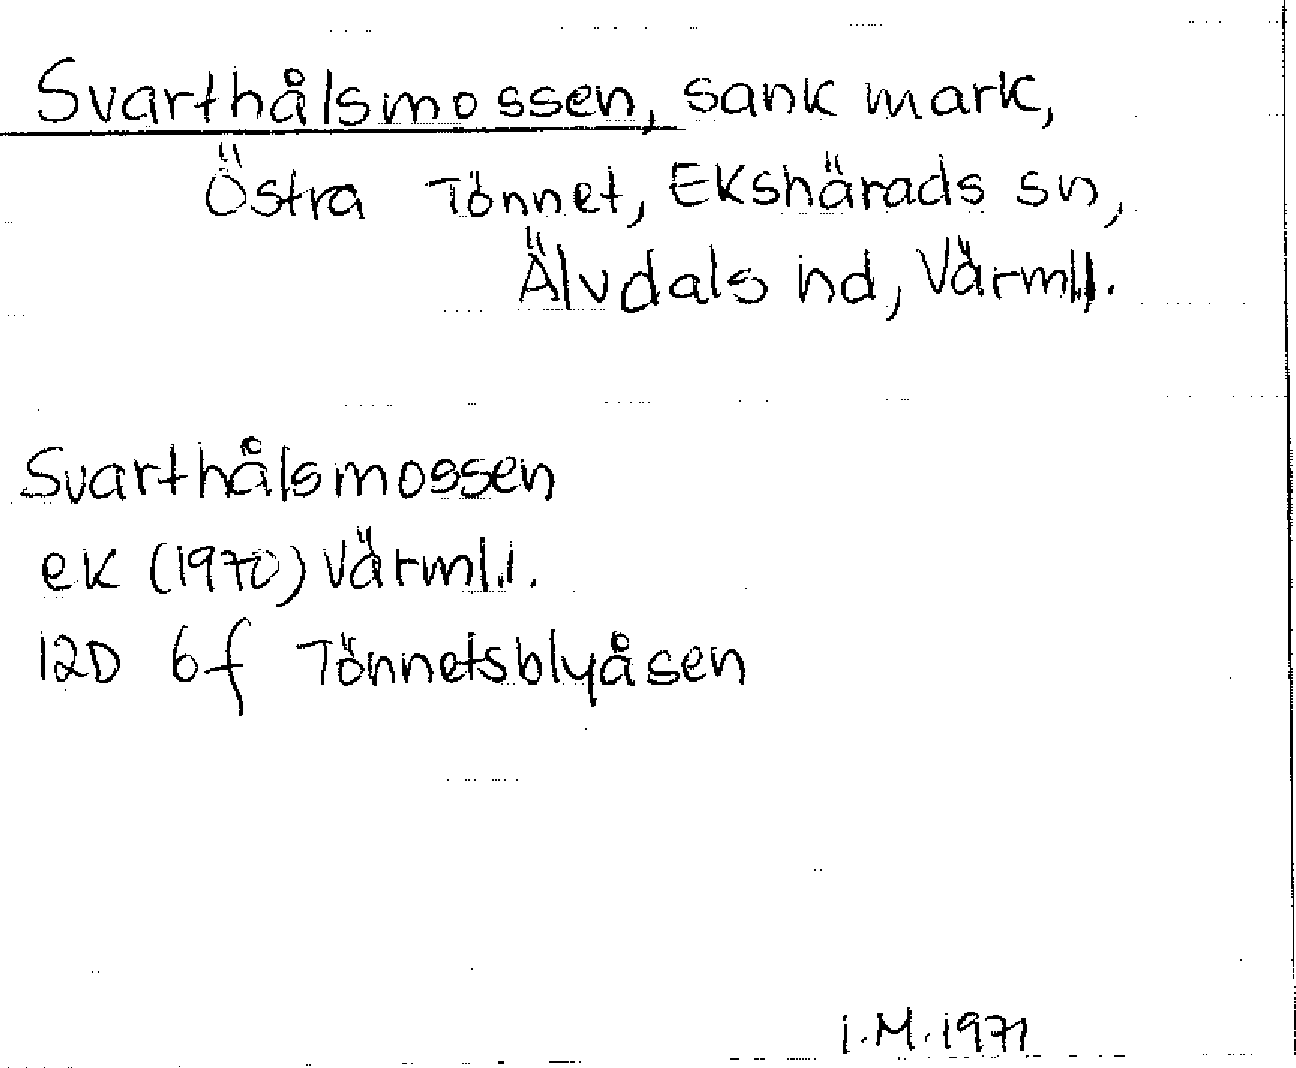 Svarthålsmossen, sank mark,
Östra Tönnet, Ekshärads sn,
Älvdals hd, Värml.
Svarthålsmossen
ek (1970) Värml.
12D 6f Tönnetsblyåsen
I.M. 1971